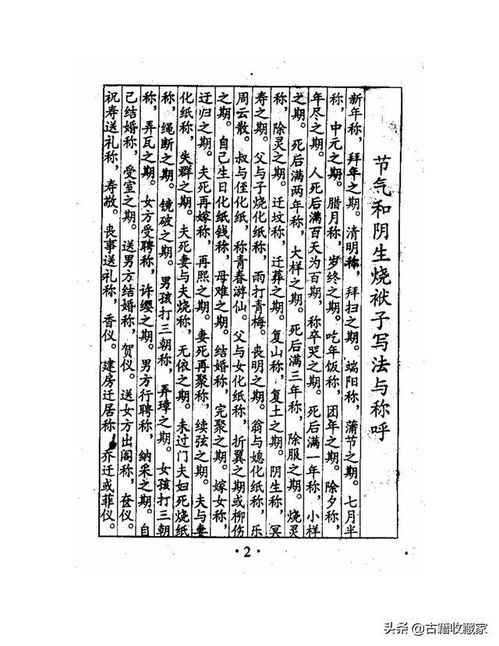 节气和阴生烧袱子写法与称呼
新年称，拜年之期。清明称，拜扫之期。端阳称，蒲节之期。七月半
称，中元之期。腊月称，岁终之期。吃年饭称，团年之期。除夕称，
年尽之期。人死后满百天为百期。称卒哭之期。死后满一年称，小样
之期。死后满两年称，大样之期。死后满三年称，除服之期。烧灵
称，除灵之期。迁坟称，迁葬之期。复山称，复土之期。阴生称，冥
寿之期。父与子烧化纸称，雨打青梅。丧明之期。翁与媳化纸称，乐
周云散。叔与侄化纸称，称青春游仙。父与女化纸称，折翼之期或柳伤
之期。自己生日化纸钱称，母难之期。结婚称，完聚之期。嫁女称，
迂归之期。夫死再嫁称，再熙之期。妻死再聚称，续弦之期。夫与妻
化纸称，失群之期。夫死妻与夫烧称，无依之期。未过门夫妇死烧纸
称，绳断之期。镜破之期。男孩打三朝称，弄璋之期。女孩打三朝
称，弄瓦之期。女方受聘称，许缨之期。男方行聘称，纳采之期。自
己结婚称，受室之期。送男方结婚称，贺仪。送女方出阁称，奁仪。
祝寿送礼称，寿敬。丧事送礼称，香仪。建房迁居称，乔迁或菲仪。
·2·
头条 @古籍收藏家